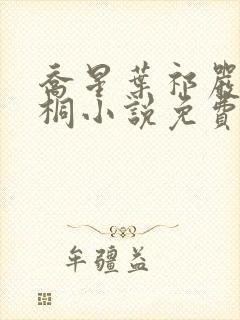 喬星葉祁嚴
桐小說免費
牟疆益